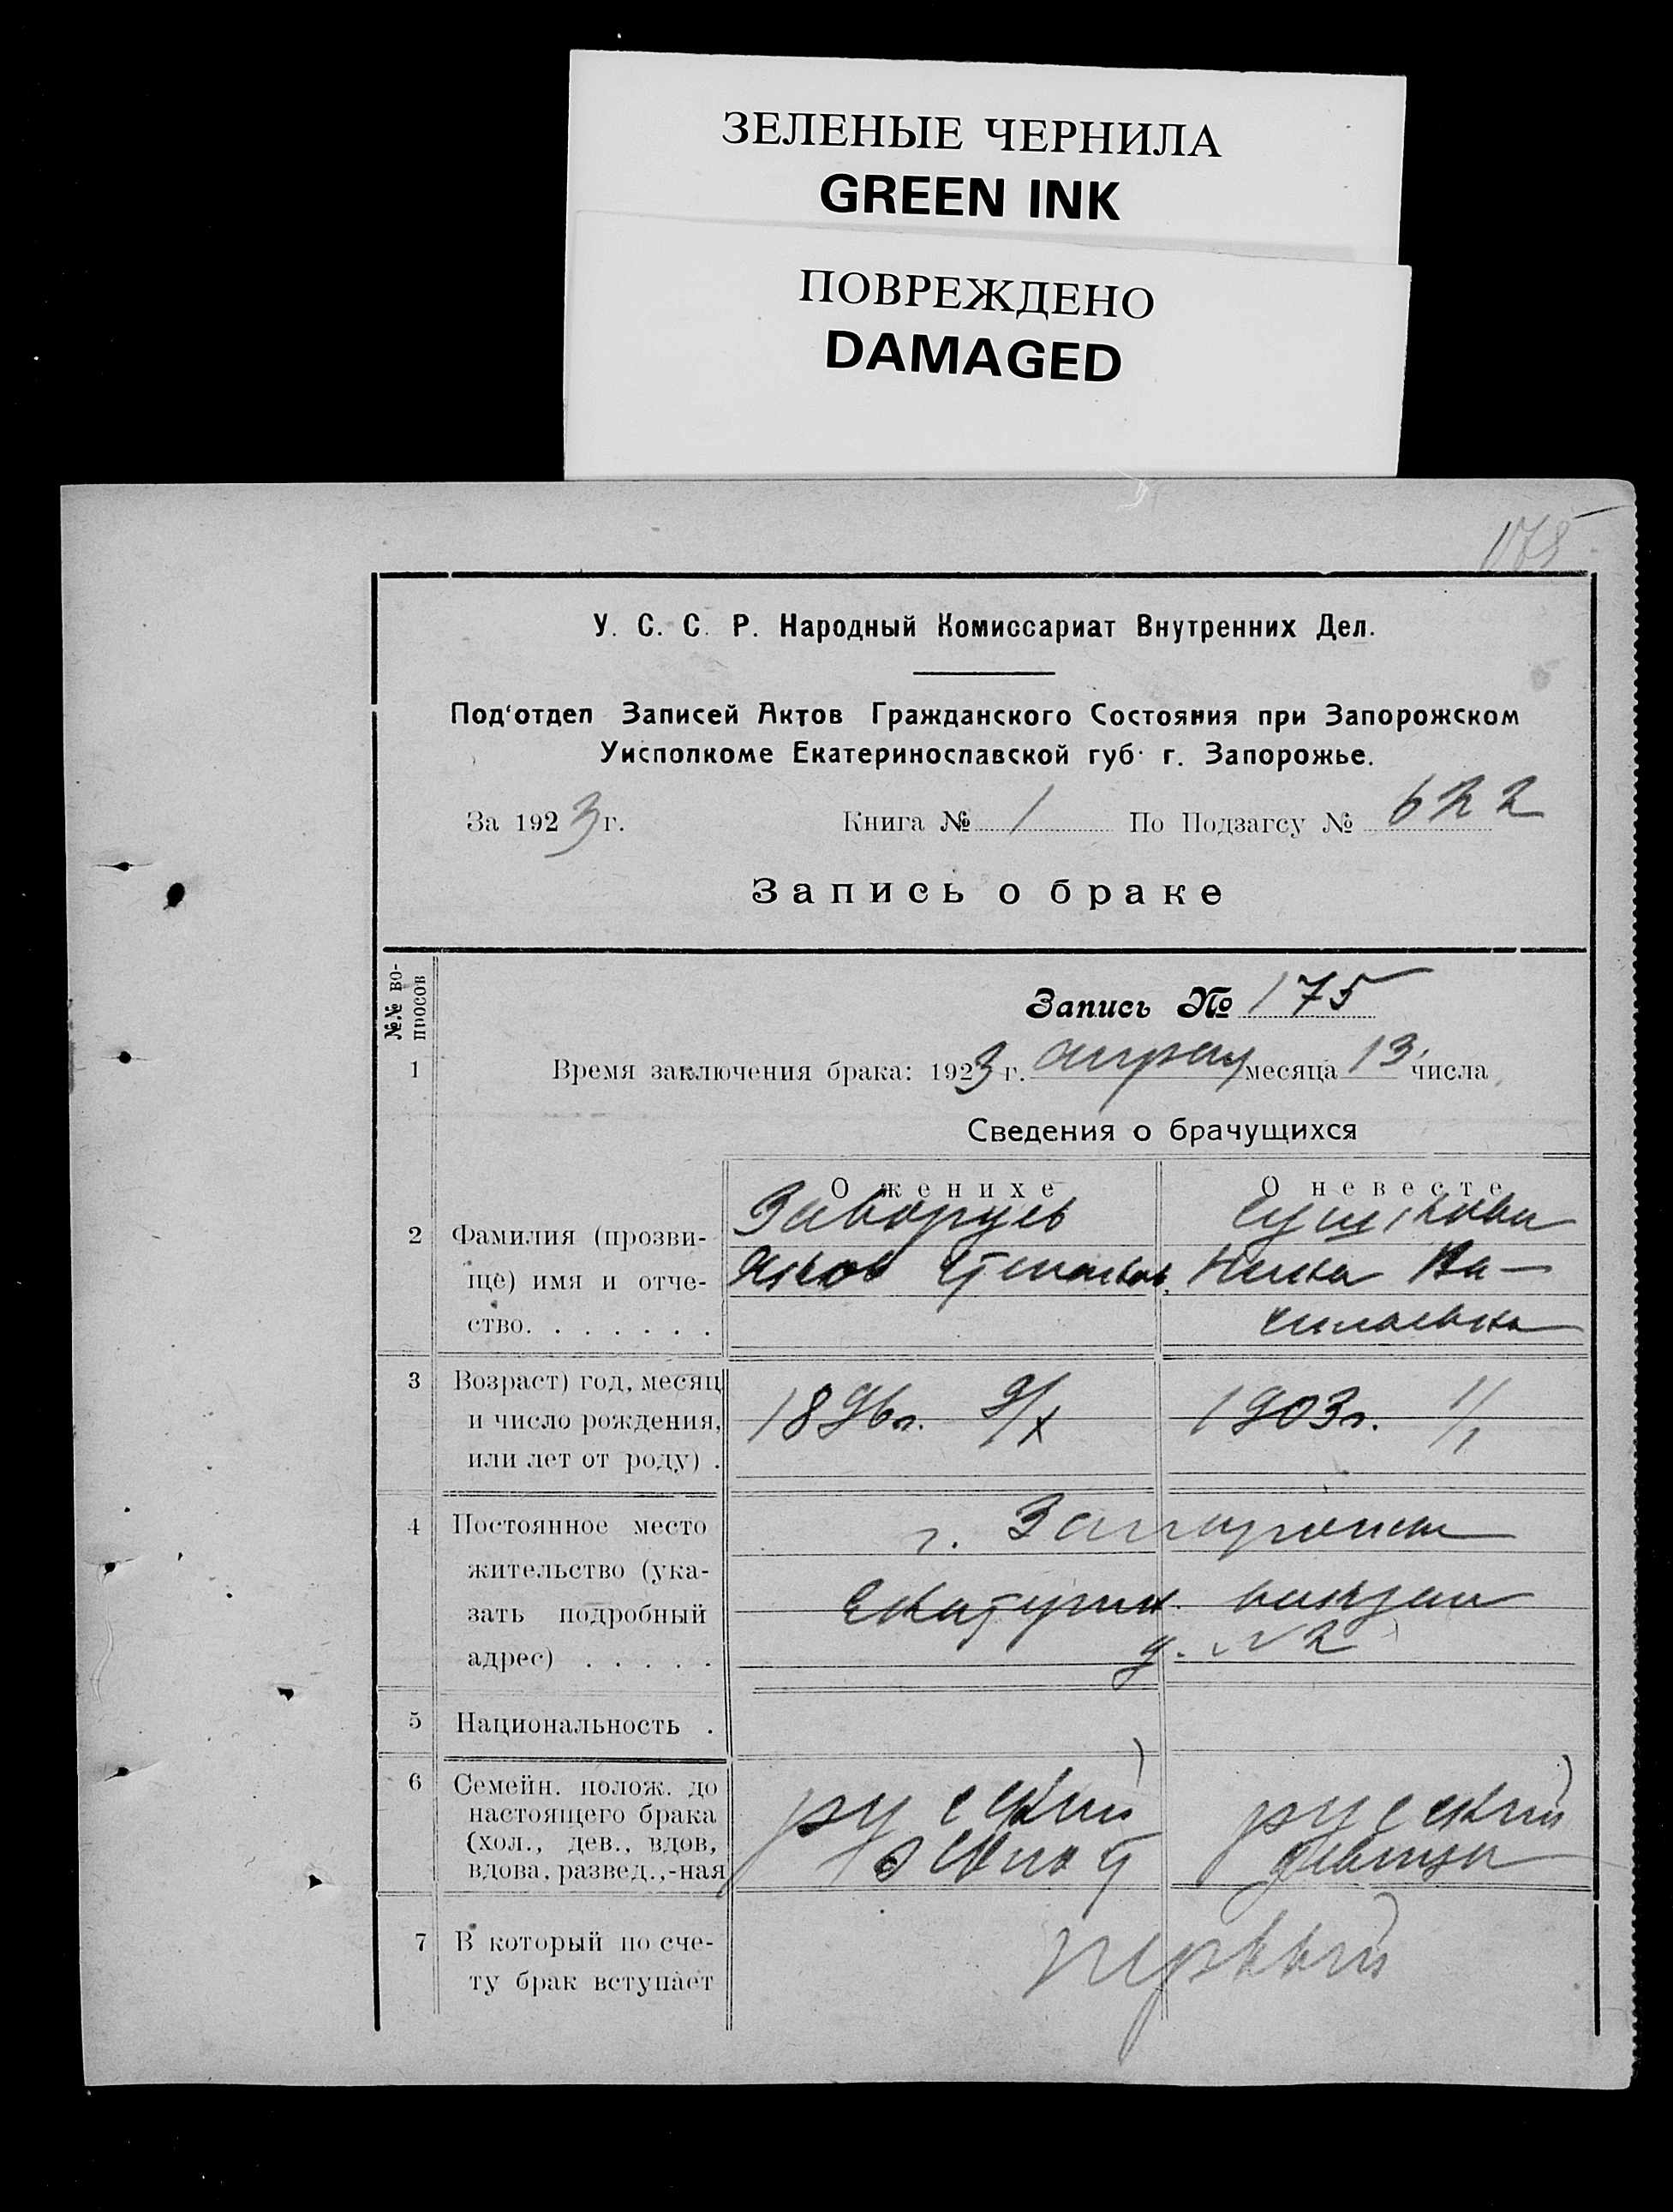 ЗЕЛЕНЫЕ ЧЕРНИЛА
GREEN INK
ПОВРЕЖДЕНО
DAMAGED
175
У. С. С. Р. Народный Комиссариат Внутренних Дел.
Под'отдел Записей Актов Гражданского Состояния при Запорожском
Уисполкоме Екатеринославской губ. г. Запорожье.
За 1923 г. Книга № 1 По Подзагсу № 622
Запись о браке
№№ во-
просов
Запись № 175
1 Время заключения брака: 1923 г. апреля месяца 13 числа
Сведения о брачущихся
О женихе О невесте
2 Фамилия (прозви-
ще) имя и отче- Яков Нина Ва-
ство. . . . . . . сильевна
3 Возраст) год, месяц
и число рождения, 1896 г. 9/X 1903 г. 1/1
или лет от роду) .
4 Постоянное место г. Запорожье
жительство (ука-
зать подробный Екатерин.
адрес) . . . . . д. № 2
5 Национальность .
6 Семейн. полож. до
настоящего брака русский русский
(хол., дев., вдов,
вдова, развед.,-ная девица
7 В который по сче- первый
ту брак вступает